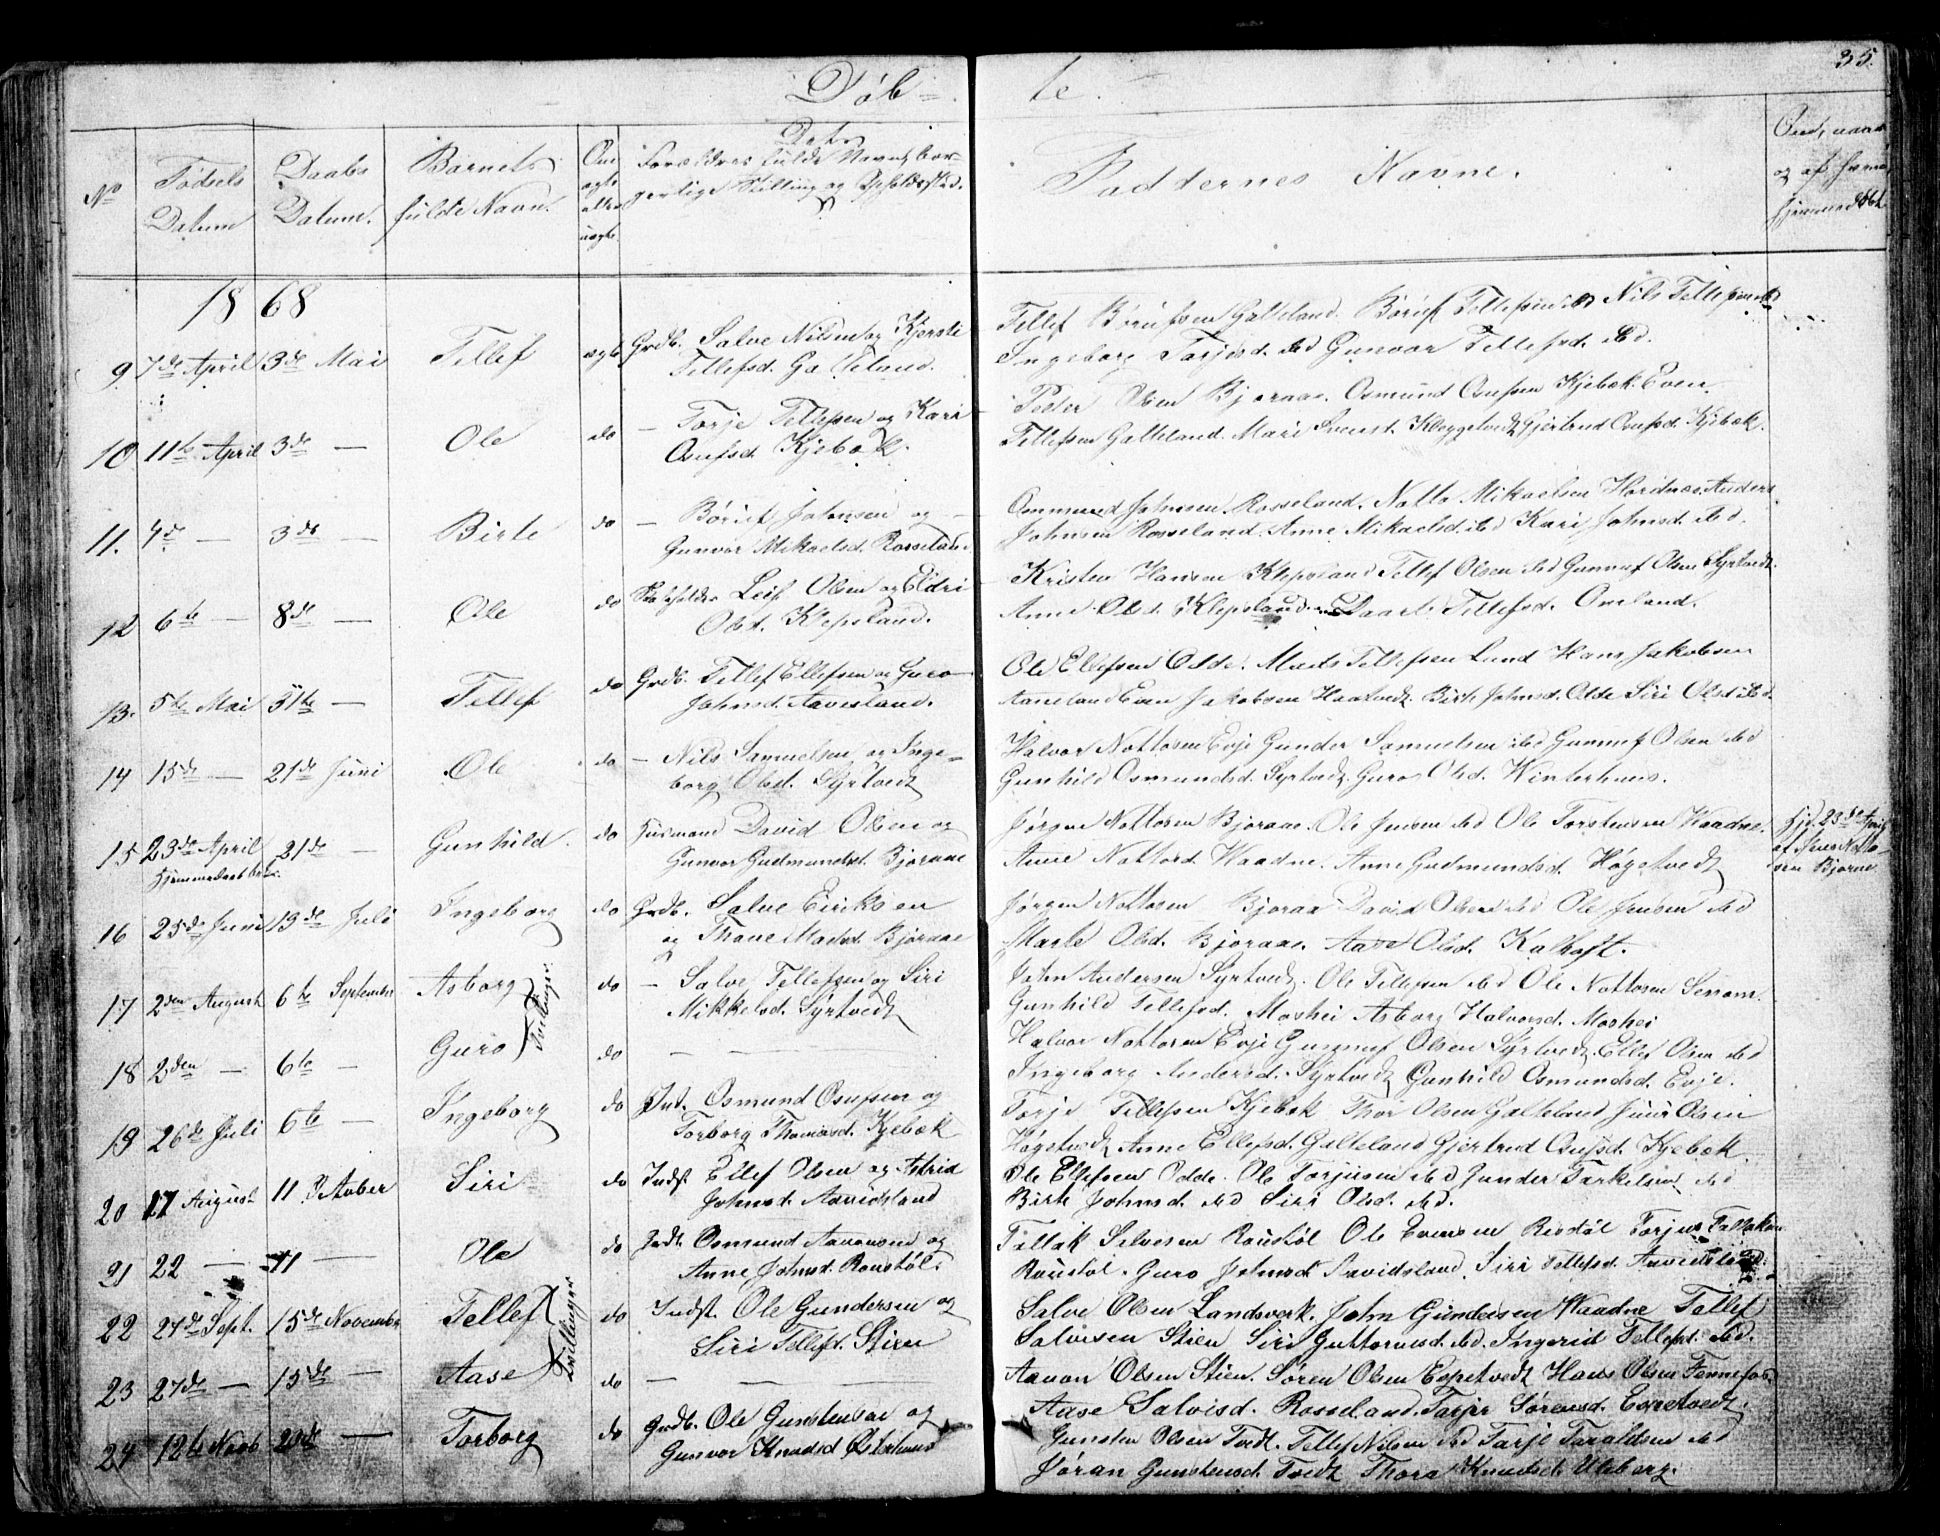 35.
Døb= te.
Dets
No
Fødsels Datum
Daabs Datum.
Barnets fulde Navn.
Om ægte eller uægte
Forældres fulde Navn, borgerlige Stilling og Opholdssted.
Faddernes Navne.
Om, naar og af hvem hjemmedøbt
1868
9 7de April 3de Mai Tellef ægte Grdb. Salve Nilsen og Kjersti
Tellefsd. Galteland.
Tellef Børufsen Galteland. Børuf Tellefsen ibd Nils Tellefsen ibd
Ingeborg Tarjesd. ibd Gunvor Tellefsd. ibd.
10 11te April 3de — Ole do — Torje Tellefsen og Kari
Osufsd Kjebæk.
Peder Olsen Bjoraae. Osmund Osufsen Kjebæk. Even
Tellefsen Galteland. Mari Svensd. Gjertrud Osufsd. Kjebæk.
11. 4de — 3de — Birte do — Børuf Johnsen og
Gunvor Mikaelsd. Rosseland.
Ommund Johnsen Rosseland. Notto Mikaelsen Hodnes. Anders
Johnsen Rosseland. Anne Mikaelsd. ibd Kari Johnsd. ibd.
12 6te — 8de — Ole do Leif Olsen og Eldri
Olsd. Klepsland.
Kristen Hansen Klepsland Tellef Olsen ibd Gunnuf Olsen Syrtvedt.
Anne Olsd. Klepsland. Tellefsd. Omland.
13. 5te Mai 31te — Tellef do Grdb. Tellef Ellefsen og Guro
Johnsd. Aavesland.
Ole Ellefsen Odde. Mads Tellefsen Lund Hans Jakobsen
Even Jakobsen Birte Johnsd. Odde Siri Olsd ibd.
14 15de — 21de Juni Ole do — Nils Samuelsen og Inge=
borg Olsd. Syrtvedt
Halvor Nottosen Evje Gunder Samuelsen ibd Gunnuf Olsen ibd
Gunhild Osmundsd. Syrtvedt. Guro Olsd. Winterhuus.
15 23de April 21de — Gunhild. do Husmand David Olsen og
Hjemmedøbt
Gunvor Gudmundsd. Bjoraae
Jørgen Nottosen Bjoraae. Ole Jensen ibd Ole Torstensen Haadne.
Anne Nottosd Haadne. Anne Gudmundsd. Høgetvedt
Hjd. 23de April
af Jens Notto
sen Bjorae
16 25de Juni 19de Juli Ingeborg do Grdb. Salve Eiriksen
og Thone Madsd. Bjoraae
Jørgen Nottosen Bjoraa David Olsen ibd Ole Jensen ibd
Marte Olsd. Bjoraae. Aase Olsd. Kalhoft.
17 2den August 6te September Asborg do — Salve Tellefsen og Siri
Mikkelsd. Syrtvedt
Tvillinger.
John Andersen Syrtvedt. Ole Tellefsen ibd Ole Nottosen Senom.
Gunhild Tellefsd. Moshei Asborg Halvorsd. Moshei
18 2den — 6te — Guro do — — —
Halvor Nottosen Evje Gunnuf Olsen Syrtvedt. Ellef Olsen ibd
Ingeborg Andersd. Syrtvedt Gunhild Osmundsd. Evje.
19 26de Juli 6te — Ingeborg do Ind. Osmund Osufsen og
Torborg Thomasd. Kjebæk
Torje Tellefsen Kjebæk Thor Olsen Galteland Olsen
Høgetvedt Anne Ellefsd. Galteland Gjertrud Osufsd. Kjebæk.
20 17 August 11 Oktober Siri do Indst Ellef Olsen og Astrid
Johnsd. Aavidsland
Ole Ellefsen Odde. Ole Torjusen ibd Gunder Tarkelsen ibd
Birte Johnsd ibd Siri Olsd. ibd.
21 22 — 11 — Ole do Indt. Osmund Aanonsen og
Anne Johnsd. Roustøl.
Tallak Salvesen Roustøl Ole Evensen Rostøl Torjus Tallaksen
Roustøl. Guro Johnsd Aavidsland. Siri Tellefsd. Aavidsland.
22 27de Sept. 15de November Tellef do Indst. Ole Gundersen og
Siri Tellefsd. Stien
Tvillinger
Salve Olsen Landsverk. John Gundersen Haadne Tellef
Salvesen Stien Siri Guttormsd. ibd. Ingerid Tellefsd. ibd.
23 27de — 15de — Aase do — — —
Aanon Olsen Stien. Søren Olsen Espetvedt Hans Olsen Fennefos.
Aase Salvesd. Rosseland. Tarjer Sørensd. Espetvedt.
24 12te Novb — Torborg do Grdb. Ole Gunstensen og
Gunvor Knudsd
Gunsten Olsen Tvedt. Tellef Nilsen ibd Tarje Taraldsen ibd
Jøran Gunstensd. Tvedt Thora Knudsd. Uleberg.